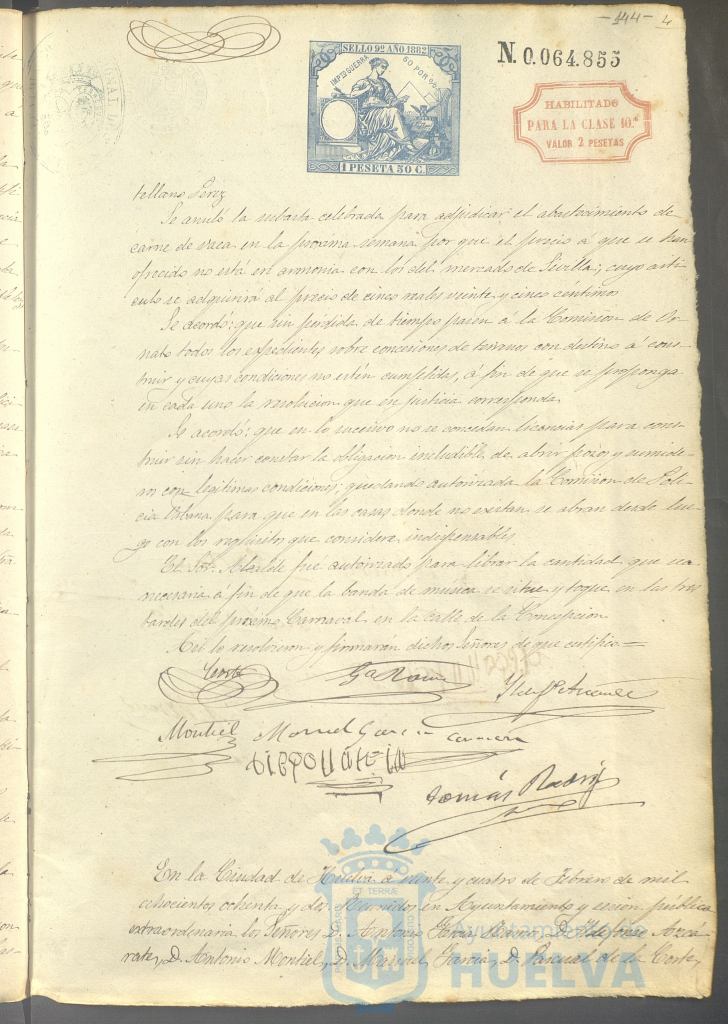 -144- 4
SELLO 9º AÑO 1882
IMPTO GUERRA 50 POR 00
1 PESETA 50 C.
N.0.064.855
HABILITADO
PARA LA CLASE 10.ª
VALOR 2 PESETAS
tellano Perez
Se anuló la subasta celebrada para adjudicar el abastecimiento de
carne de vaca en la próxima semana por que el precio a que se han
ofrecido no está en armonia con los del mercado de Sivilla; cuyo arti-
culo se adquirirá al precio de cinco reales veinte y cinco céntimos
Se acordó: que sin perdida de tiempo pasen á la Comision de Or-
nato todos los expedientes sobre concesiones de terrenos con destino á cons-
truir y cuyas condiciones no estén cumplidas, á fin de que se proponga
en cada uno la resolucion que en justicia corresponda.
Se acordó: que en lo sucesivo no se concedan licencias para cons-
truir sin hacer constar la obligacion ineludible de abrir pozos y sumide-
ros con legitimas condiciones; quedando autorizada la Comision de Poli-
cia Urbana para que en las casas donde no existan se abran desde lue-
go con los requisitos que considere indispensables
El Sor. Alcalde fué autorizado para librar la cantidad que sea
necesaria á fin de que la banda de música se situe y toque en las tres
tardes del próximo Carnaval en la calle de la Concepcion
Asi lo resolvieron y firmarán dichos Señores de que certifico.=
Montiel Manuel Garcia
Tomás
En la Ciudad de Huelva a veinte y cuatro de Febrero de mil
ochocientos ochenta y dos. Reunidos en Ayuntamiento y sesion pública
extraordinaria los Señores D. Antonio Garcia Ramos, D. Ildefonso Azca-
rate, D. Antonio Montiel, D. Manuel Garcia, D. Pascual de la Corte,
Ayuntamiento de
HUELVA